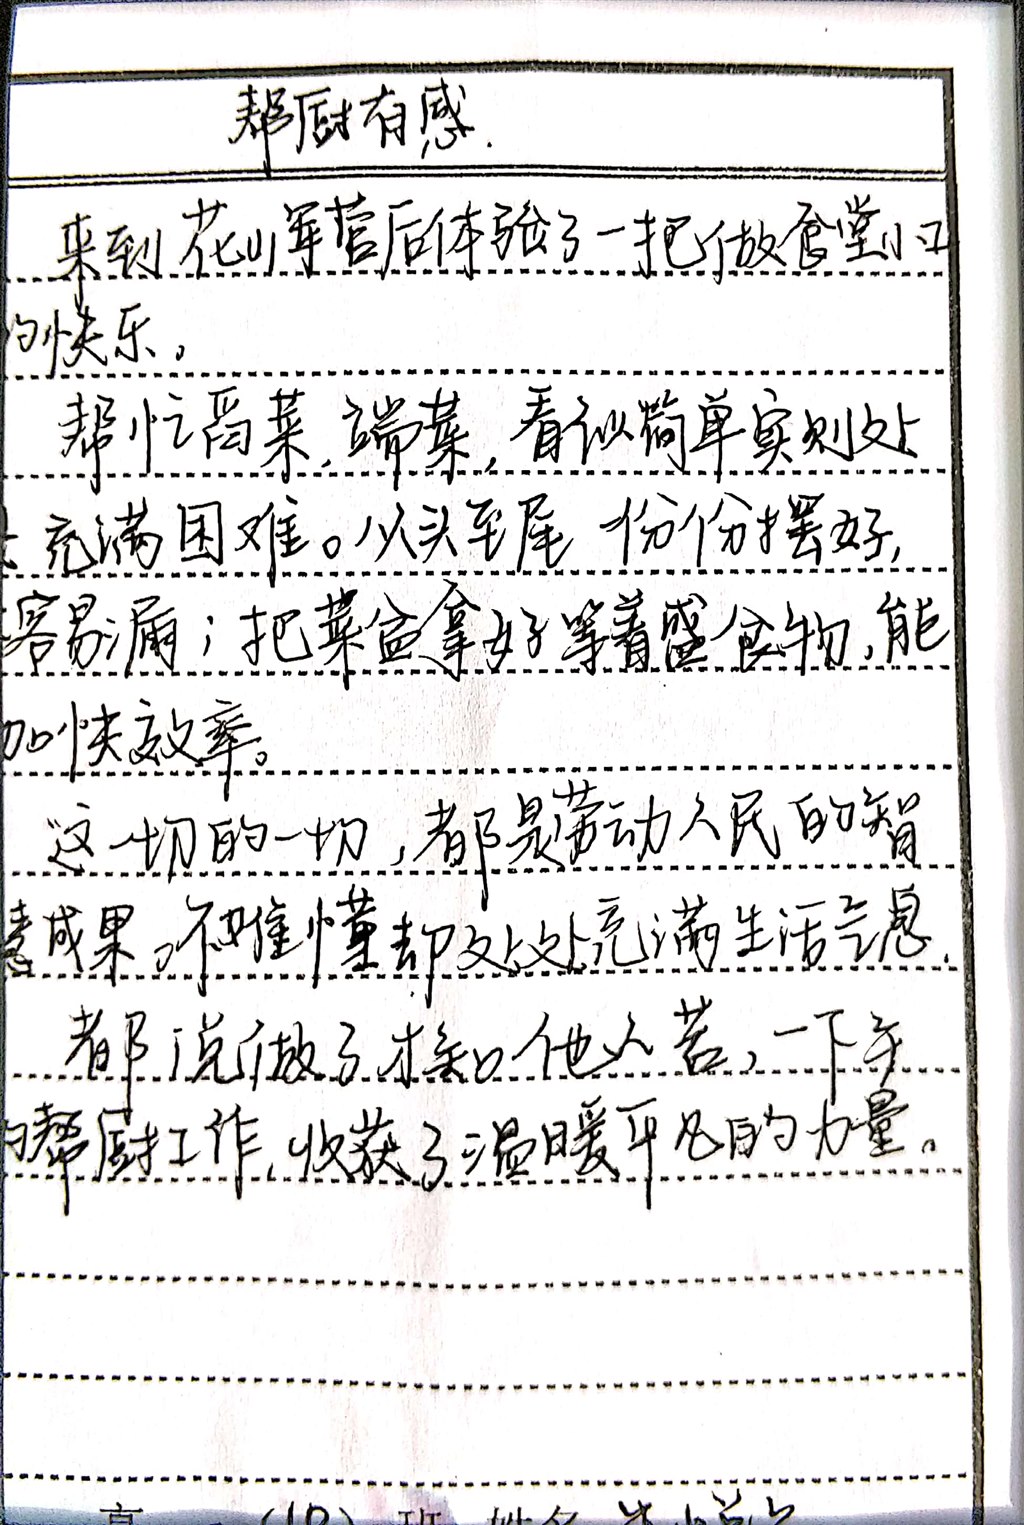 帮厨有感.
来到花山军营后体验了一把做食堂小工
的快乐。
帮忙舀菜、端菜，看似简单实则处
充满困难。从头至尾一份份摆好，
容易漏；把菜盆拿好等着盛食物，能
加快效率。
这一切的一切，都是劳动人民的智
慧成果。不难懂却处处充满生活气息.
都说做了才知他人苦，一下午
的帮厨工作，收获了温暖平凡的力量。
高 (10) 班 姓名